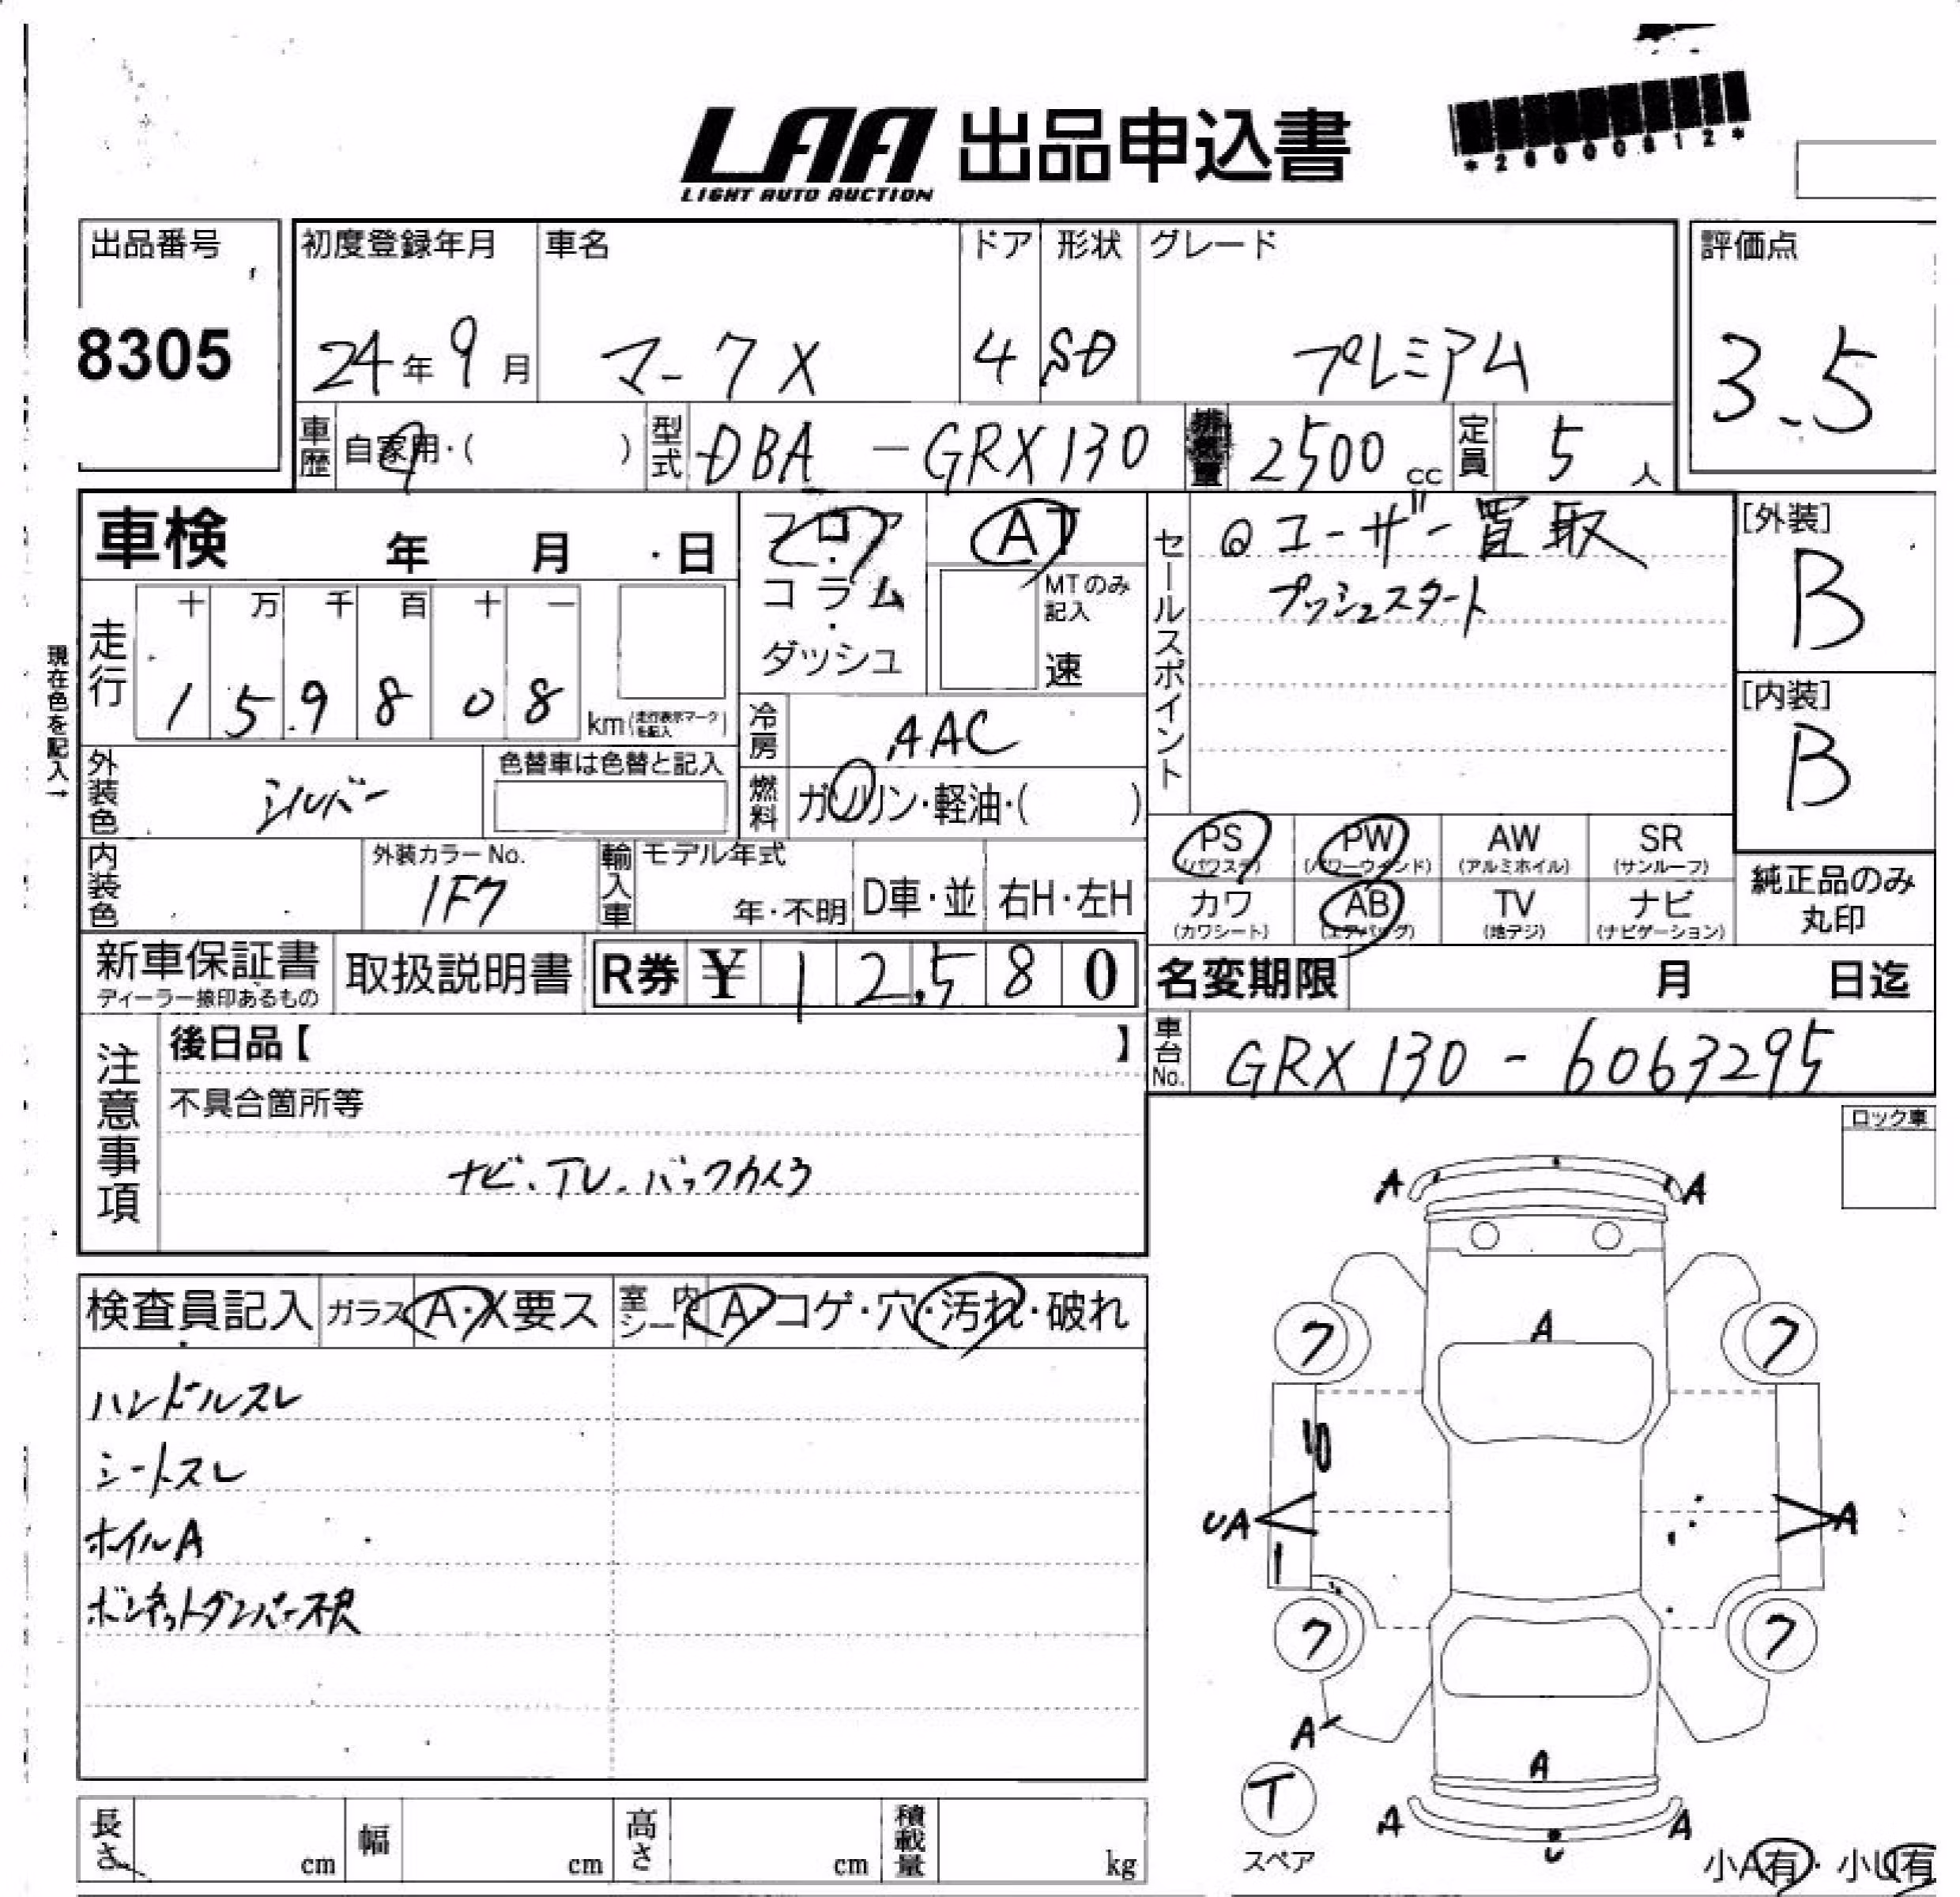 LAA 出品申込書
LIGHT AUTO AUCTION
*26000812*
出品番号
8305
初度登録年月
24年9月
車名
マークX
ドア
4
形状
SD
グレード
プレミアム
評価点
3.5
車歴
自家用・( )
型式
DBA-GRX130
排気量
2500cc
定員
5人
車検 年 月 日
フロア・コラム・ダッシュ
AT
MTのみ記入
速
セールスポイント
ユーザー買取
プッシュスタート
[外装]
B
[内装]
B
現在色を記入→
走行
十 万 千 百 十 一
1 5 9 8 0 8 km(走行表示マークを記入)
冷房
AAC
燃料
ガソリン・軽油・( )
外装色
シルバー
色替車は色替と記入
内装色
外装カラーNo.
1F7
輸入車
モデル年式
年・不明
D車・並
右H・左H
PS (パワステ)
PW (パワーウインド)
AW (アルミホイル)
SR (サンルーフ)
カワ (カワシート)
AB (エアバッグ)
TV (地デジ)
ナビ (ナビゲーション)
純正品のみ丸印
新車保証書
ディーラー捺印あるもの
取扱説明書
R券 ¥12,580
名変期限 月 日迄
車台No.
GRX130-6063295
注意事項
後日品【 】
不具合箇所等
ナビ・TV・バックカメラ
ロック車
検査員記入
ガラス A・X要ス
室内シート A・コゲ・穴・汚れ・破れ
ハンドルスレ
シートスレ
ホイルA
ボンネットダンパー不良
A A
A
フ フ
UA A
フ フ
A
A
A A
U
T
スペア
小A有・小U有
長さ cm
幅 cm
高さ cm
積載量 kg